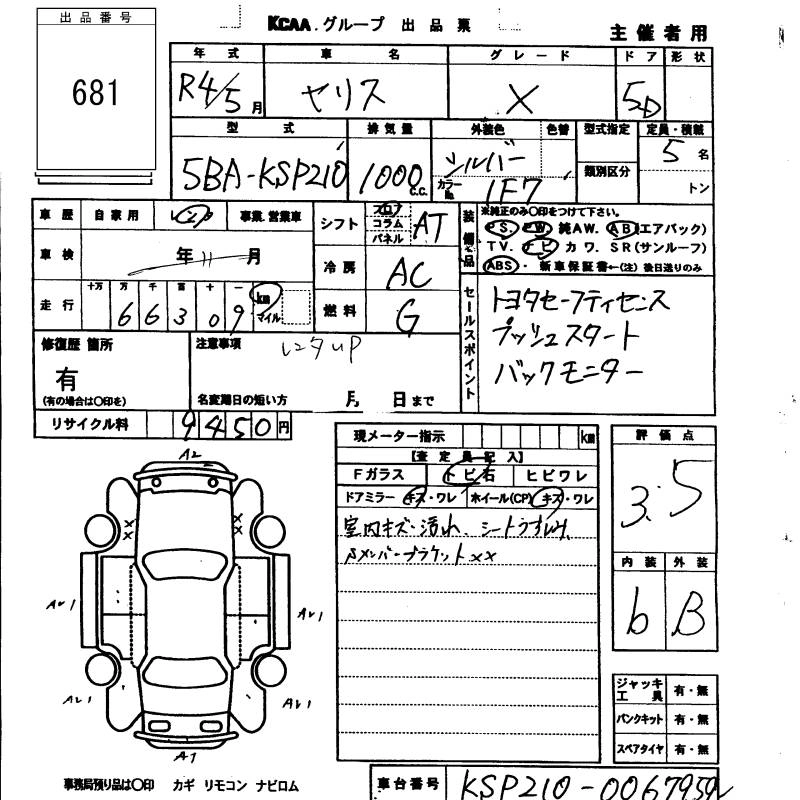 出品番号
681
KCAA.グループ 出品票
主催者用
年式 車名 グレード ドア 形状
R4/5月 ヤリス X 5D
型式 排気量 外装色 色替 型式指定 定員・積載
5BA-KSP210 1000c.c. シルバー 5名
カラーNo. 1F7 類別区分 トン
車歴 自家用 レンタ 事業.営業車
シフト フロア コラム パネル AT
装備品 ※純正のみ〇印をつけて下さい。
PS. PW 純AW. AB(エアバック)
TV. ナビ カワ. SR(サンルーフ)
ABS・ 新車保証書←(注) 後日送りのみ
車検 年11月
冷房 AC
走行 十万 万 千 百 十 一
66309 km マイル
燃料 G
セールスポイント
トヨタセーフティセンス
プッシュスタート
バックモニター
修復歴 箇所
有
(有の場合は〇印を)
注意事項
レンタUP
名変期日の短い方 月 日まで
リサイクル料 9450円
現メーター指示 km
【査定員記入】
Fガラス トビ石 ヒビワレ
ドアミラー キズ・ワレ ホイール(CP) キズ・ワレ
室内キズ・汚れ、シートうすよごれ
Sメンバーブラケットxx
評価点
3.5
内装 外装
b B
A2
x x
x x
AU1 AU1
AU1 AU1
A1
ジャッキ工具 有・無
パンクキット 有・無
スペアタイヤ 有・無
事務局預り品は〇印 カギ リモコン ナビロム
車台番号 KSP210-0067959